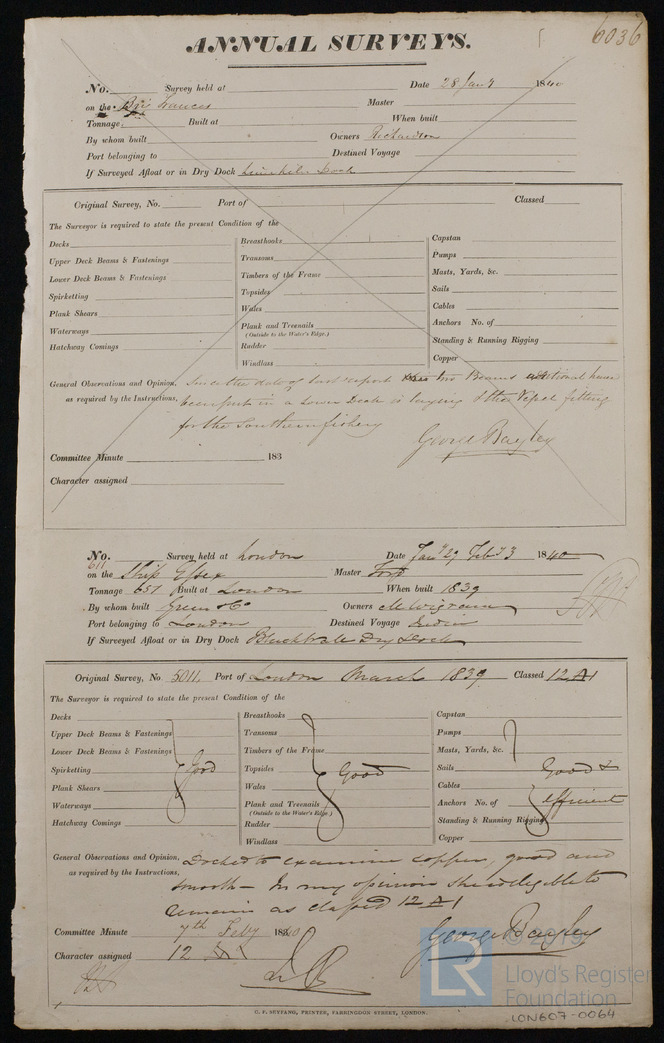 6036
ANNUAL SURVEYS.
No. Survey held at Date 28 Jany 1840
on the Brig Frances Master
Tonnage Built at When built
By whom built Owners Richardson
Port belonging to Destined Voyage
If Surveyed Afloat or in Dry Dock Limekiln Dock
Original Survey, No. Port of Classed
The Surveyor is required to state the present Condition of the
Decks
Upper Deck Beams & Fastenings
Lower Deck Beams & Fastenings
Spirketting
Plank Shears
Waterways
Hatchway Comings
Breasthooks
Transoms
Timbers of the Frame
Topsides
Wales
Plank and Treenails
(Outside to the Water's Edge.)
Rudder
Windlass
Capstan
Pumps
Masts, Yards, &c.
Sails
Cables
Anchors No. of
Standing & Running Rigging
Copper
General Observations and Opinion, Since the date of last report two Beams additional have
as required by the Instructions, been put in a Lower Deck is laying & the Vessel fitting
for the Southern fishery
George Bayley
Committee Minute 183
Character assigned
No. 611 Survey held at London Date Jany 29 Feb 3 1840
on the Ship Essex Master Ford
Tonnage 651 Built at London When built 1839
By whom built Green & Co Owners M Wigram
Port belonging to London Destined Voyage India
If Surveyed Afloat or in Dry Dock Blackwall Dry Dock
Original Survey, No 5011, Port of London March 1839 Classed 12 A1
The Surveyor is required to state the present Condition of the
Decks
Upper Deck Beams & Fastenings
Lower Deck Beams & Fastenings
Spirketting Good
Plank Shears
Waterways
Hatchway Comings
Breasthooks
Transoms
Timbers of the Frame
Topsides Good
Wales
Plank and Treenails
(Outside to the Water's Edge.)
Rudder
Windlass
Capstan
Pumps
Masts, Yards, &c.
Sails Good &
Cables
Anchors No. of efficient
Standing & Running Rigging
Copper
General Observations and Opinion, Docked to examine copper, good and
as required by the Instructions, smooth - In my opinion she is eligible to
remain as classed 12 A1
Committee Minute 7th Feby 1840
George Bayley
Character assigned 12 A1
C. F. SEYFANG, PRINTER, FARRINGDON STREET, LONDON.
LR
© 2019
Lloyd's Register
Foundation
LON607-0064